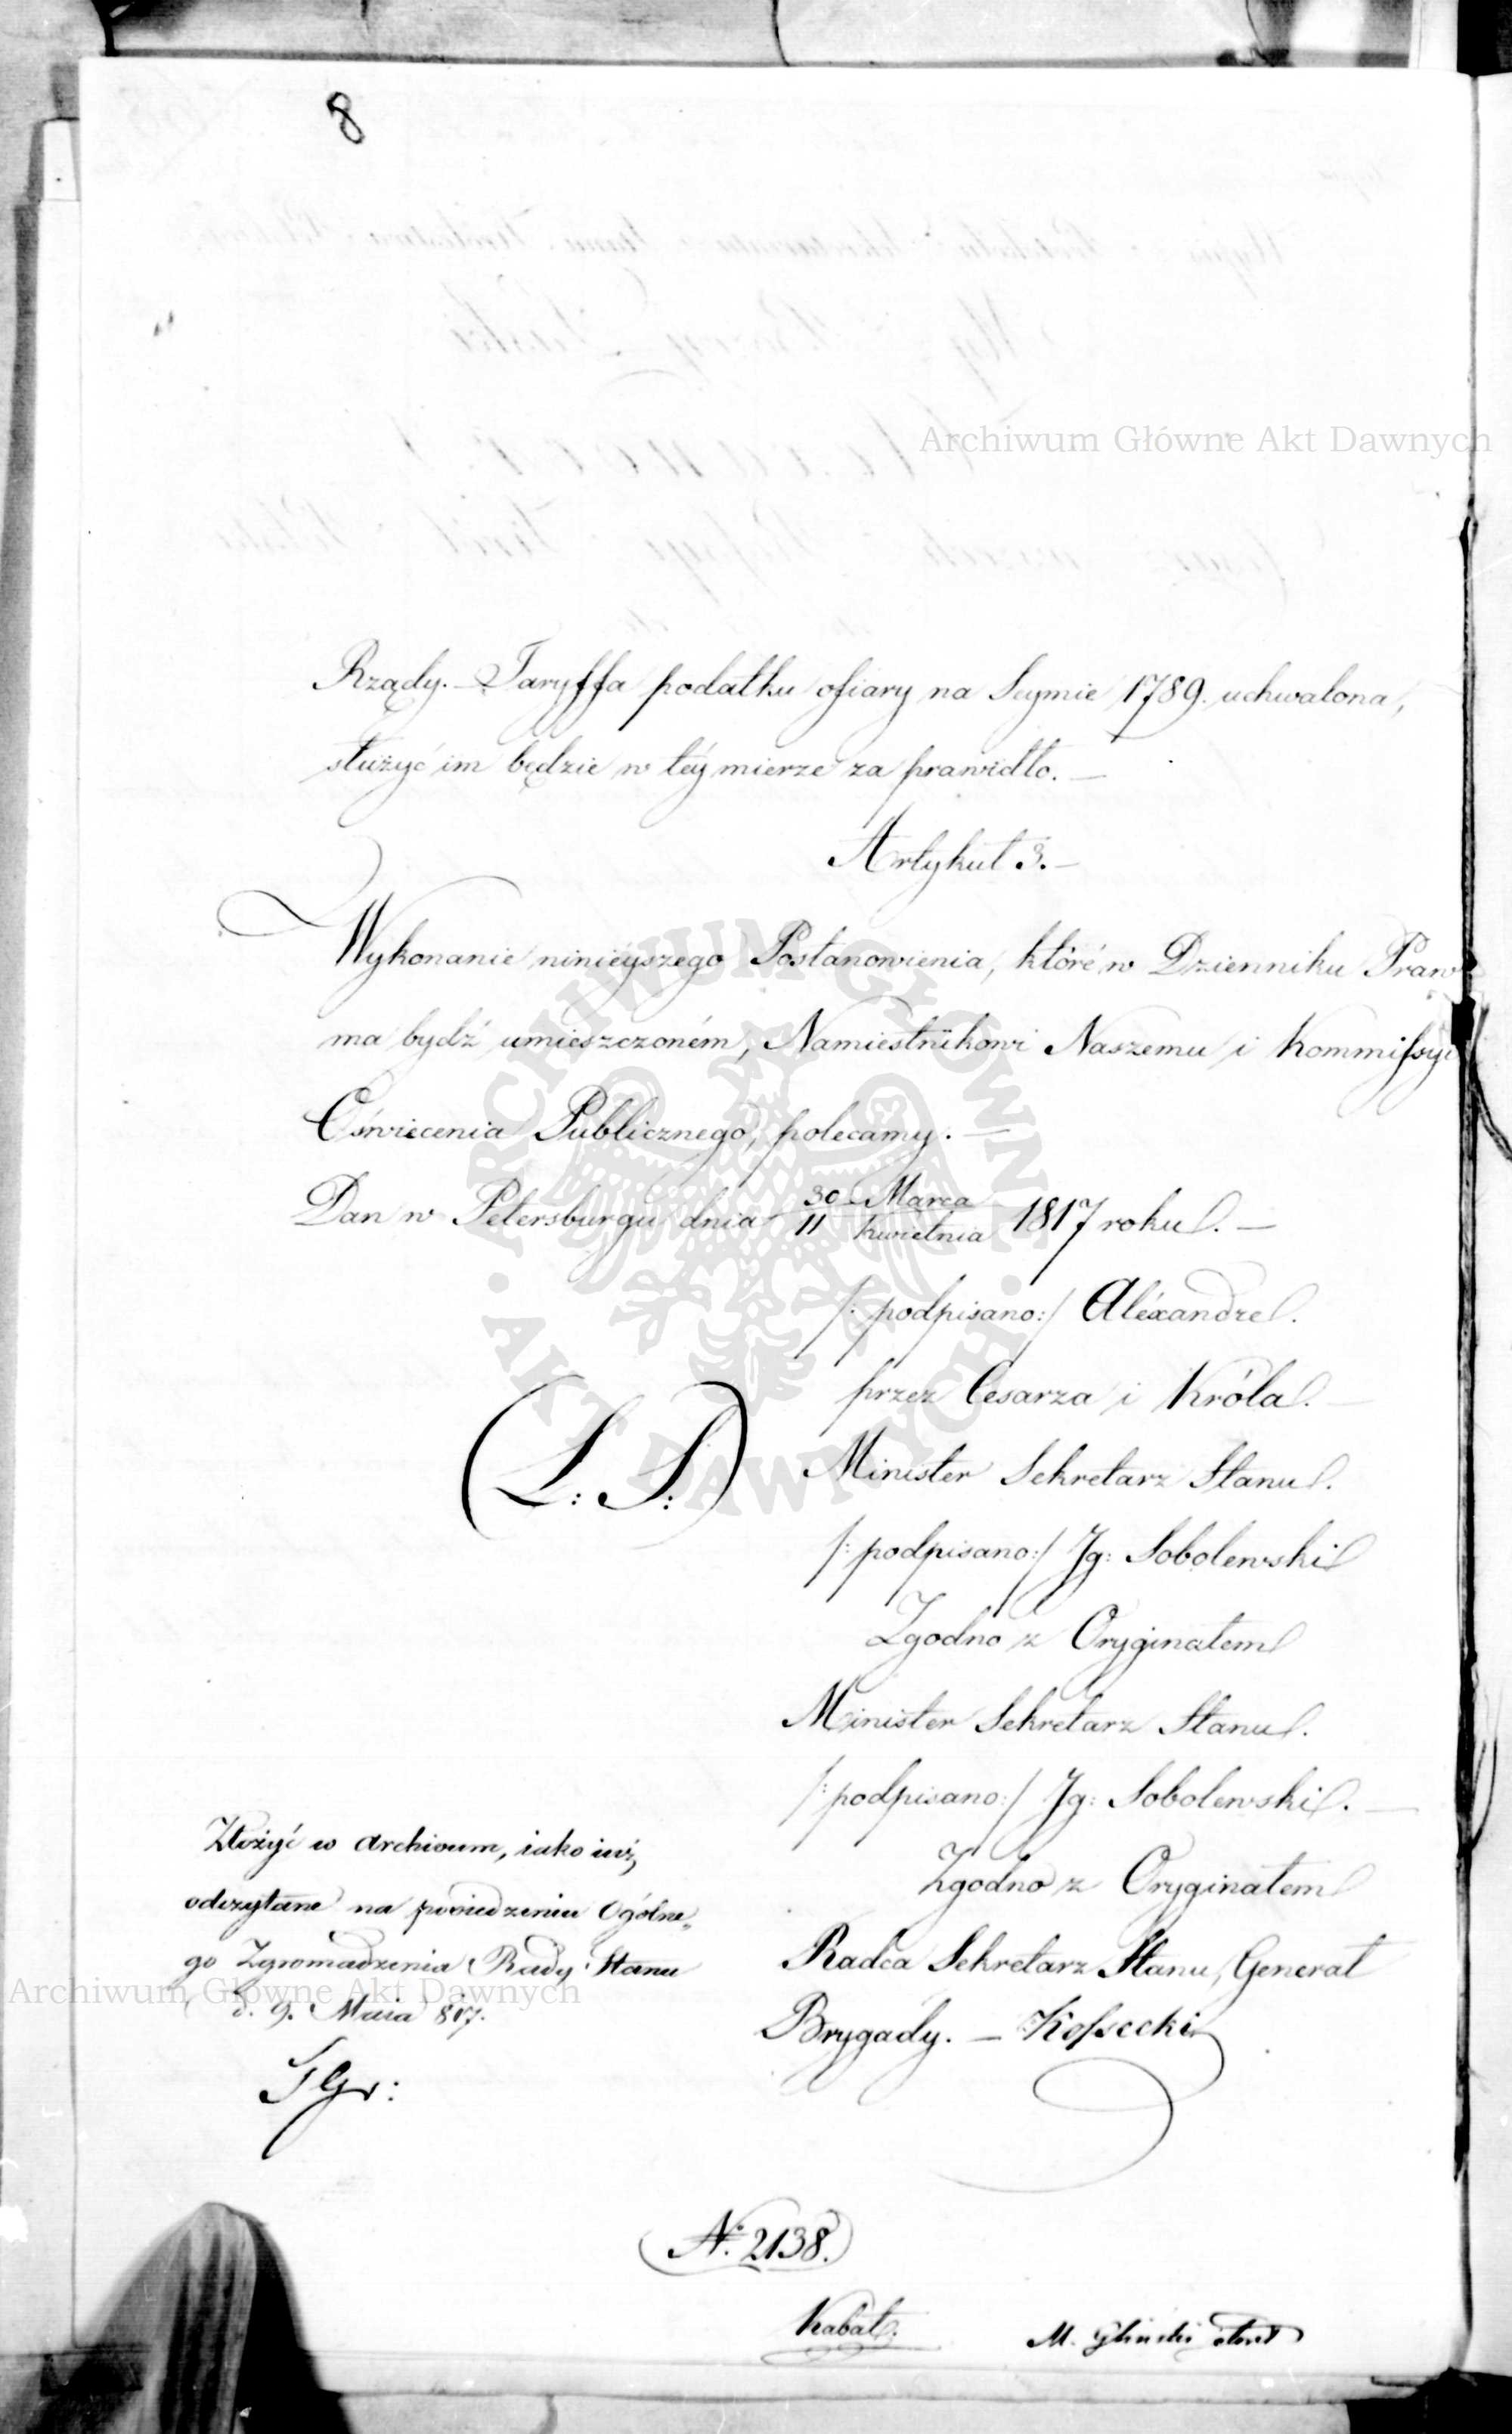 8
Rządy. – Taryffa podatku ofiary na Seymie 1789. uchwalona,
służyć im będzie w téy mierze za prawidło. –
Artykuł 3. –
Wykonanie ninieyszego Postanowienia, któré w Dzienniku Praw
ma bydź umieszczoném, Namiestnikowi Naszemu i Kommissyi
Oświecenia Publicznego, polecamy. –
Dan w Petersburgu dnia 30 Marca / 11 Kwietnia 1817 roku. –
/: podpisano :/ Aléxandre.
przez Cesarza i Króla. –
(L: S:)
Minister Sekretarz Stanu.
/: podpisano :/ Jg: Sobolewski
Zgodno z Oryginałem
Minister Sekretarz Stanu.
/: podpisano :/ Jg: Sobolewski. –
Zgodno z Oryginałem
Radca Sekretarz Stanu, Generał
Brygady. – Kossecki
Złożyć w Archivum, iako iuż,
odczytane na posiedzeniu Ogólne„
go Zgromadzenia Rady Stanu
d. 9. Maia 817.
N: 2138.
Kabat.
M. Gliński
Archiwum Główne Akt Dawnych
ARCHIWUM GŁÓWNE · AKT DAWNYCH ·
Archiwum Główne Akt Dawnych